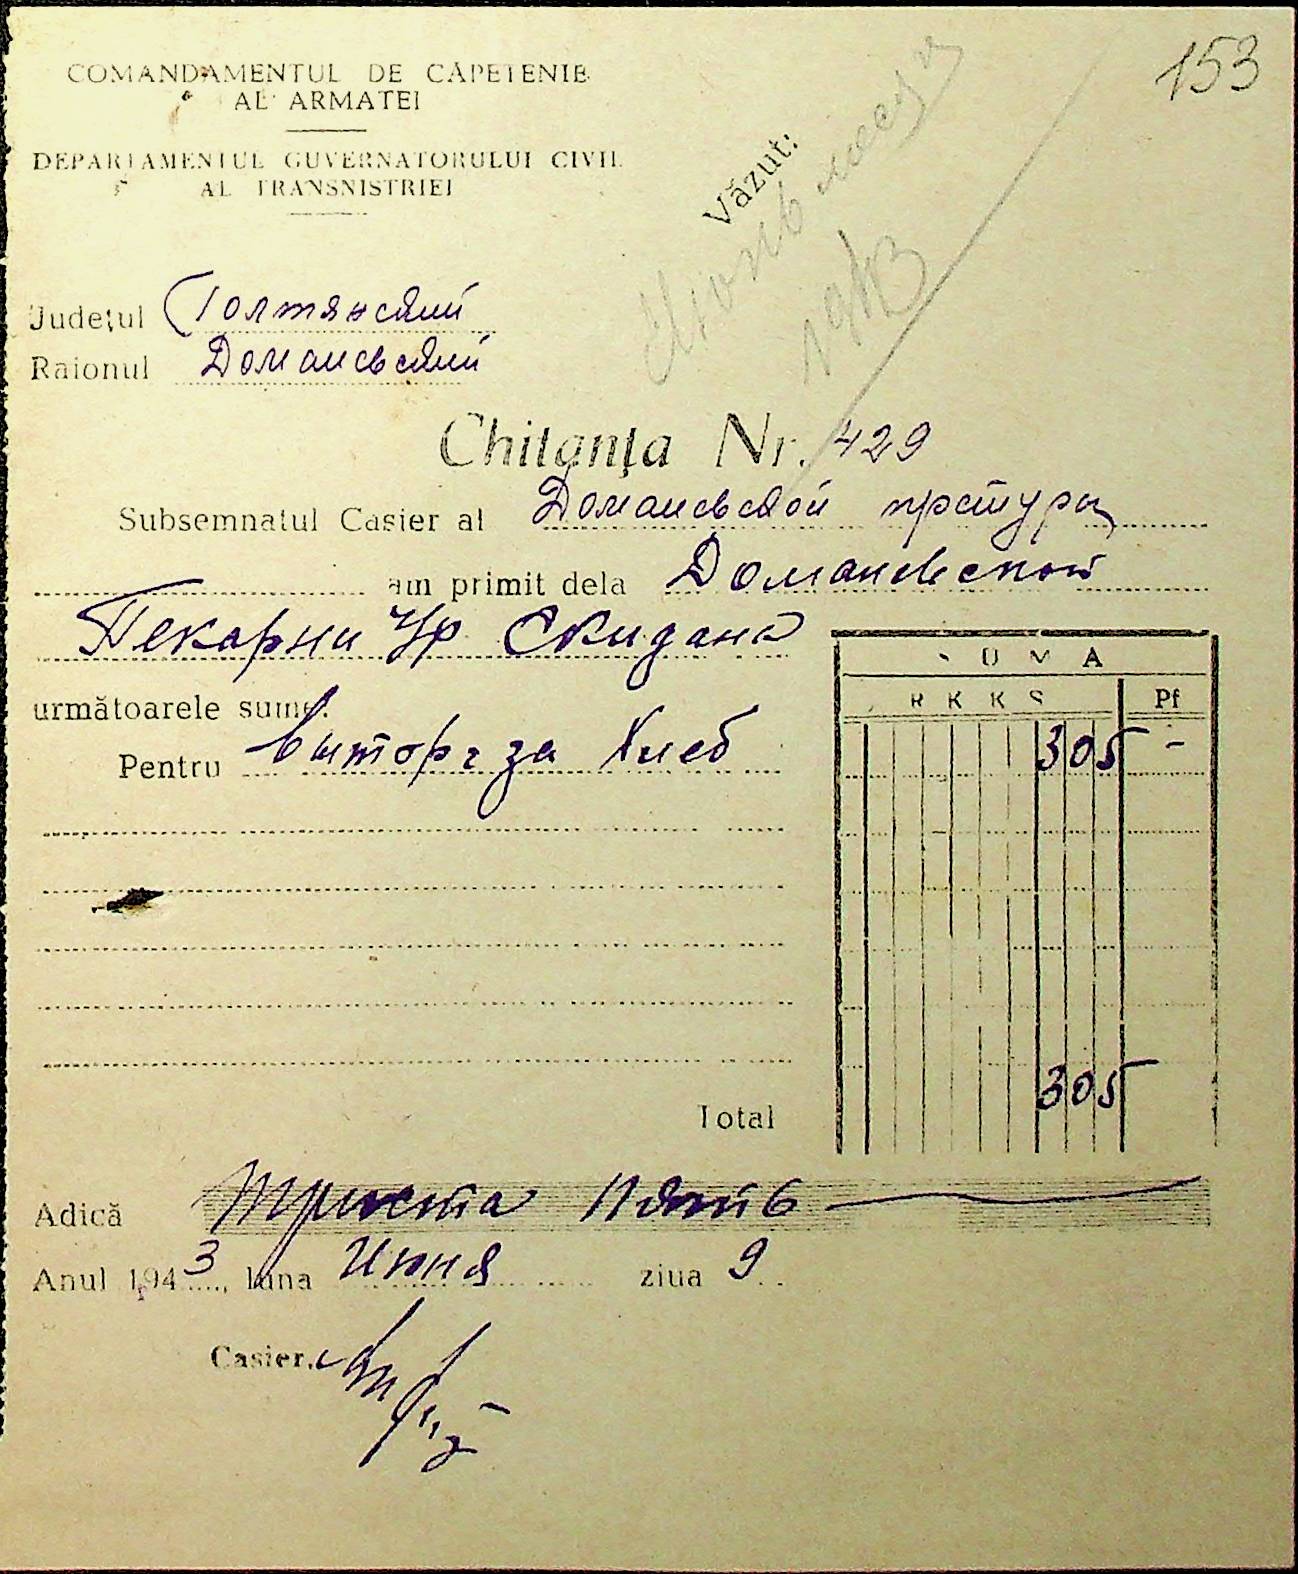 153
COMANDAMENTUL DE CAPETENIE
AL ARMATEI
DEPARTAMENTUL GUVERNATORULUI CIVIL
AL TRANSNISTRIEI
Văzut:
Июнь месяц
1943
Județul Голтянский
Raionul Доманевский
Chitanța Nr. 429
Subsemnatul Casier al Доманевской претуры
am primit dela Доманевской
Пекарни Чр Скидана
următoarele sume:
SUMA
RKKS Pf
Pentru выторг за Хлеб 305 -
Total 305
Adică Триста пять
Anul 1943, luna Июня ziua 9
Casier,